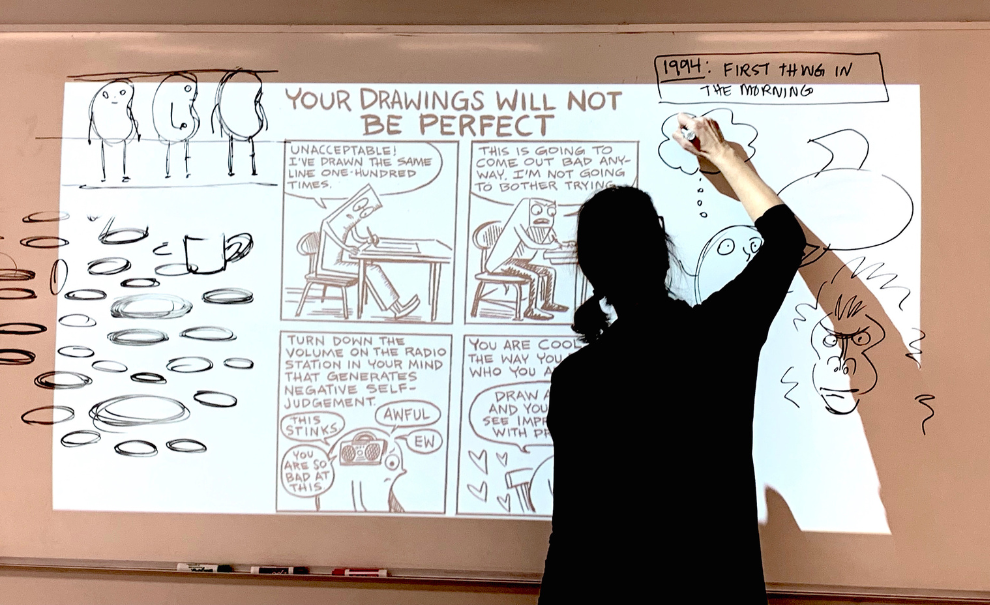 YOUR DRAWINGS WILL NOT
BE PERFECT
1994: FIRST THING IN
THE MORNING
UNACCEPTABLE!
I'VE DRAWN THE SAME
LINE ONE-HUNDRED
TIMES.
THIS IS GOING TO
COME OUT BAD ANY-
WAY. I'M NOT GOING
TO BOTHER TRYING
TURN DOWN THE
VOLUME ON THE RADIO
STATION IN YOUR MIND
THAT GENERATES
NEGATIVE SELF-
JUDGEMENT.
THIS
STINKS
AWFUL
EW
YOU
ARE SO
BAD AT
THIS
YOU ARE
THE WAY
WHO YOU
DRAW
AND
SEE
WITH